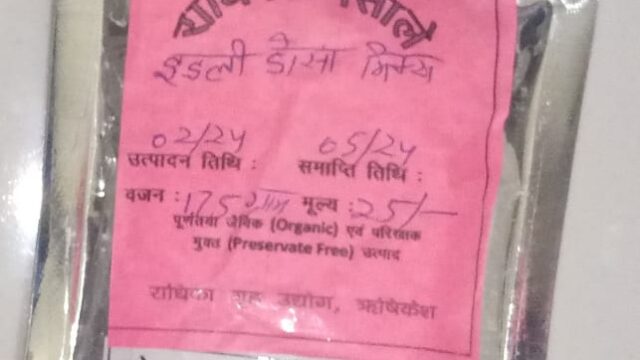 मसाले
इडली डोसा मिक्स
02/24 05/24
उत्पादन तिथि : समाप्ति तिथि :
वजन : 175 ग्राम मूल्य : 25/-
पूर्णतया जैविक (Organic) एवं परिरक्षक
मुक्त (Preservate Free) उत्पाद
राधिका गृह उद्योग, ऋषिकेश